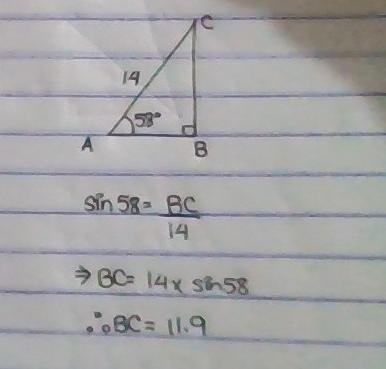 C
14
58°
A
B
sin 58 = BC
14
⇒ BC = 14 x sin 58
∴ BC = 11.9